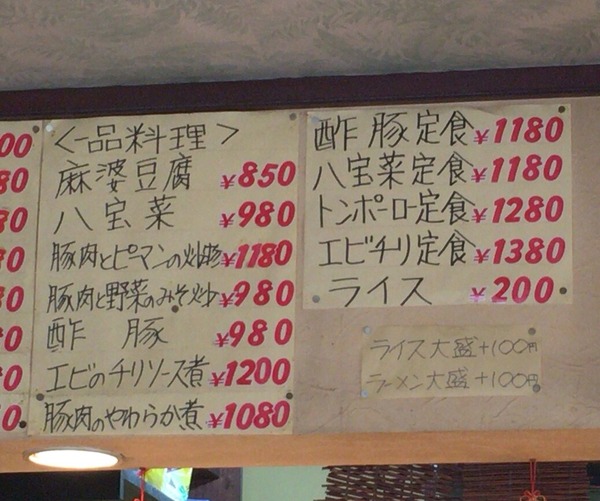 00
80
80
0
80
0
0
0
<一品料理>
麻婆豆腐 ¥850
八宝菜 ¥980
豚肉とピーマンの炒め ¥1180
豚肉と野菜のみそ炒 ¥980
酢 豚 ¥980
エビのチリソース煮 ¥1200
豚肉のやわらか煮 ¥1080
酢豚定食 ¥1180
八宝菜定食 ¥1180
トンポーロー定食 ¥1280
エビチリ定食 ¥1380
ライス ¥200
ライス大盛+100円
ラーメン大盛+100円